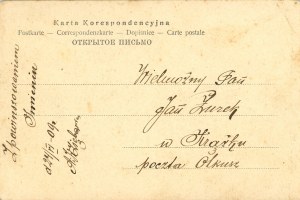 Karta Korespondencyjna
Postkarte — Correspondenzkarte — Dopisnice — Carte postale
ОТКРЫТОЕ ПИСЬМО
Wielmożny Pan
Jan Żurek
w
poczta Olkusz
Z powinszowaniem
Imienin